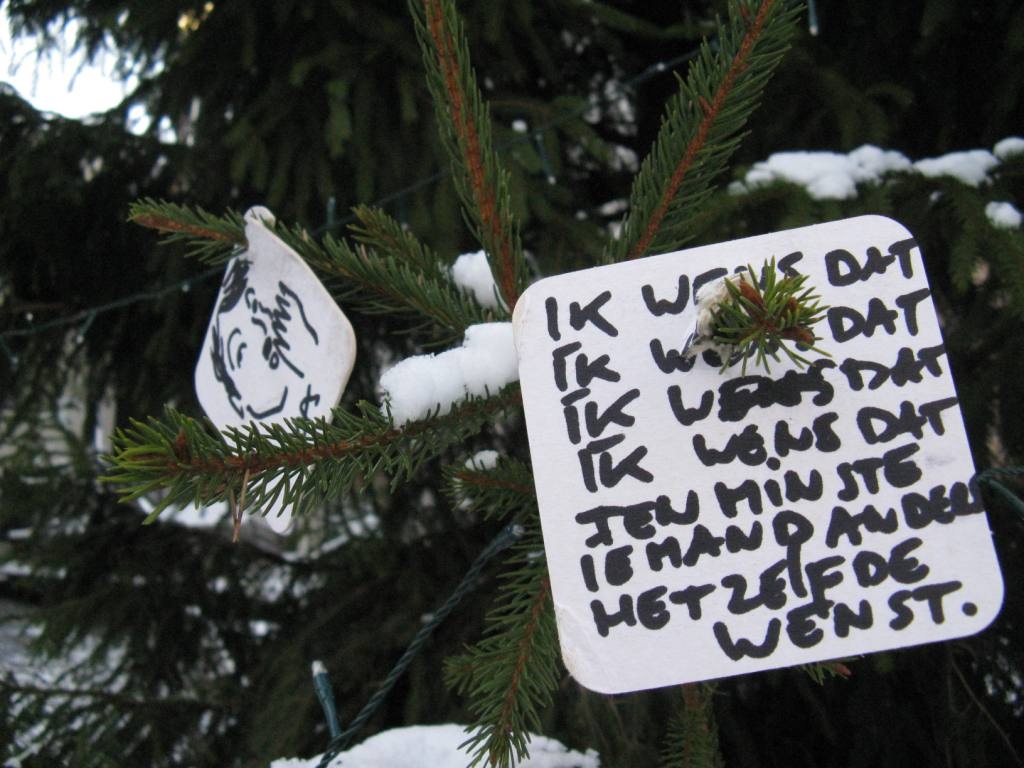 IK WENS DAT
IK DAT
IK WENS DAT
IK WENS DAT
TEN MINSTE
IEMAND ANDERS
HETZELFDE
WENST.